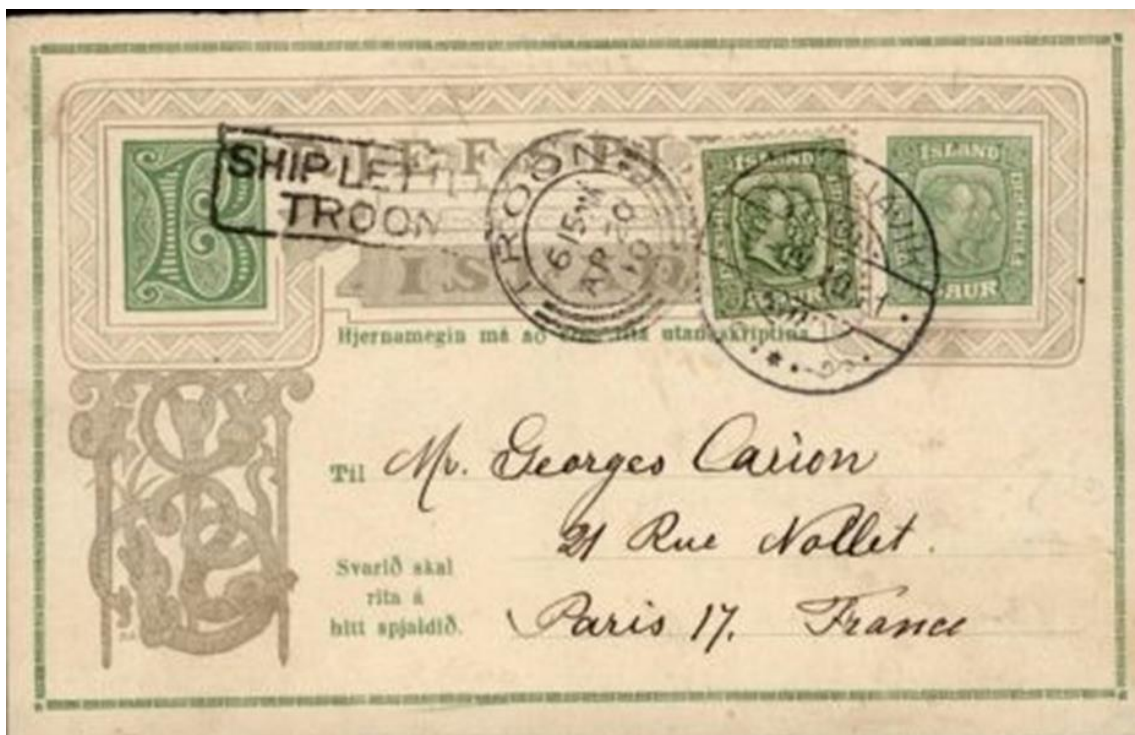 SHIP LET
TROON
TROON
6 15 PM
AP
10
ISLAND
AUR
ISLAND
5 AUR
Hjernamegin má að rita utanáskriptina
Til Mr. Georges Carion
21 Rue Nollet.
Paris 17. France
Svarið skal
rita á
hitt spjaldið.